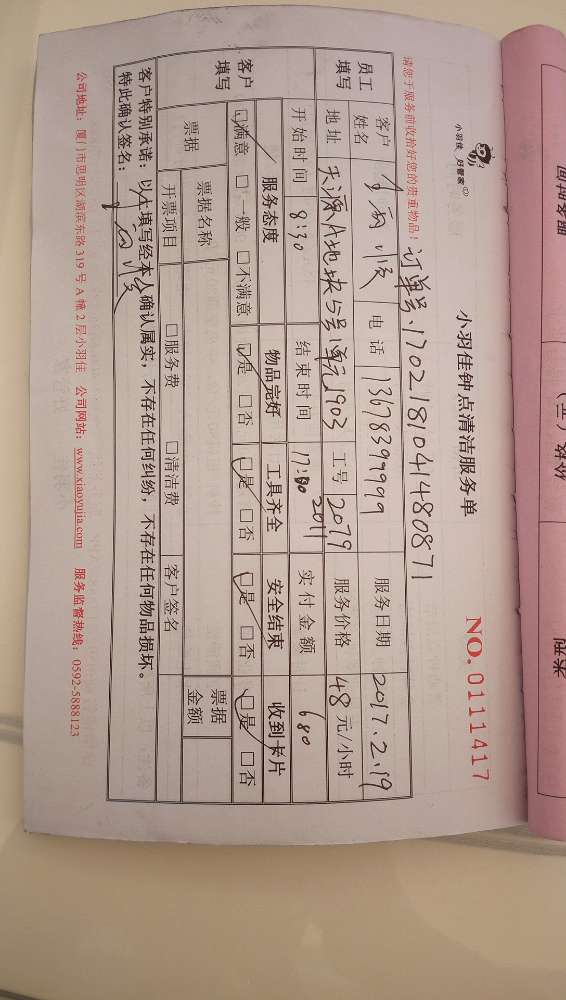 小羽佳 好管家
小羽佳钟点清洁服务单
NO. 0111417
请您于服务前收拾好您的贵重物品!
订单号:1702181041480871
员工填写
客户姓名
电话 13678399999
服务日期 2017.2.19
地址 天源A地块5号1单元1903
工号 2079 2011
服务价格 48元/小时
开始时间 8:30
结束时间 17:30
实付金额 680
客户填写
服务态度 物品完好 工具齐全 安全结束 收到卡片
☑满意 □一般 □不满意 ☑是 □否 ☑是 □否 ☑是 □否 ☑是 □否
票据 票据名称 票据金额
开票项目 □服务费 □清洁费 客户签名
客户特别承诺:以上填写经本人确认属实,不存在任何纠纷,不存在任何物品损坏。
特此确认签名:
公司地址:厦门市思明区湖滨东路319号A幢2层小羽佳 公司网站:www.xiaoyujia.com 服务监督热线:0592-5888123